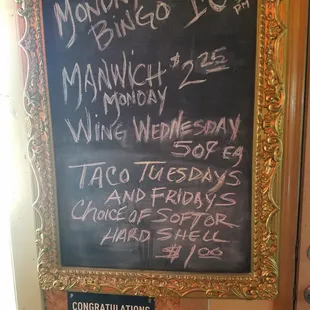 MONDAY
BINGO
PM
MANWICH $2.25
MONDAY
WING WEDNESDAY
50¢ EA
TACO TUESDAYS
AND FRIDAYS
CHOICE OF SOFT OR
HARD SHELL
$1.00
CONGRATULATIONS